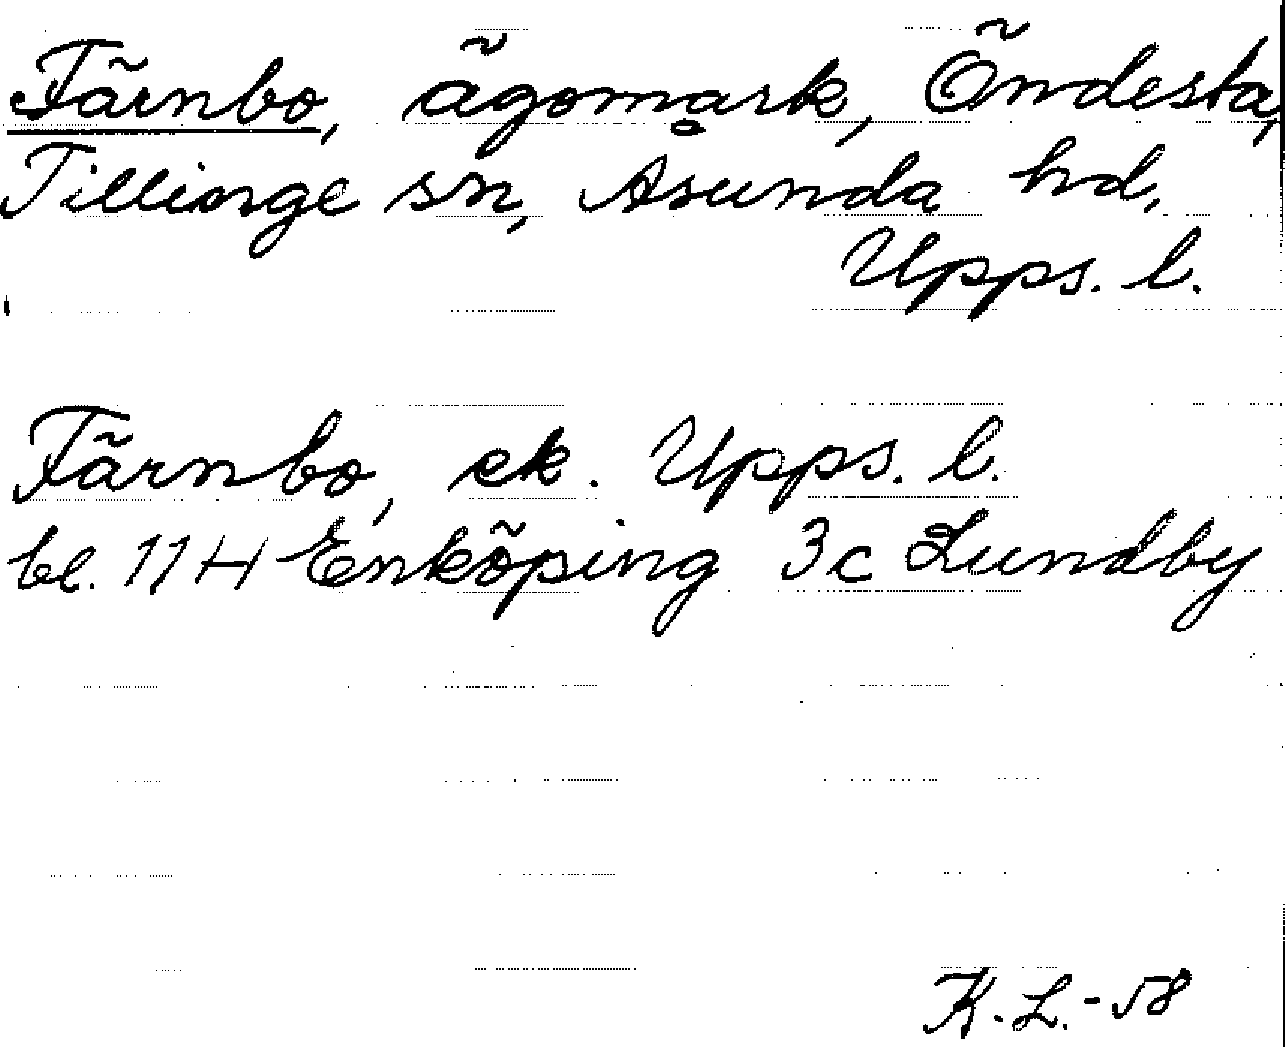 Färnbo, ägomark, Öndesta,
Tillinge sn, Åsunda hd,
Upps. l.
Färnbo, ek. Upps. l.
bl. 11H Enköping 3c Lundby
K. L. - 58